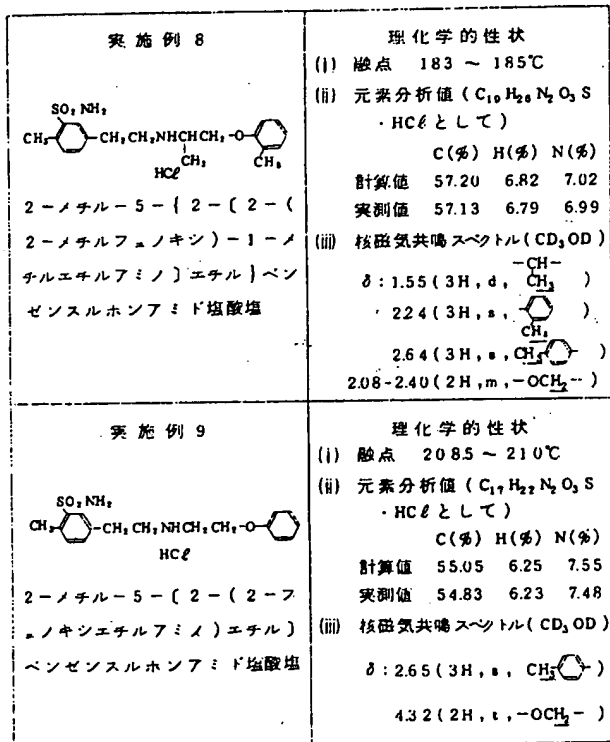 実施例 8
SO2 NH2
CH3 CH2CH2NHCHCH2-O-
CH3 CH3
HCl
2-メチル-5-{2-〔2-(
2-メチルフェノキシ)-1-メ
チルエチルアミノ〕エチル}ベン
ゼンスルホンアミド塩酸塩
理化学的性状
(i) 融点 183 ~ 185℃
(ii) 元素分析値 (C19H26N2O3S
・HClとして)
C(%) H(%) N(%)
計算値 57.20 6.82 7.02
実測値 57.13 6.79 6.99
(iii) 核磁気共鳴スペクトル(CD3OD)
-CH-
δ:1.55(3H,d, CH3 )
2.24(3H,s, )
CH3
2.64(3H,s, CH3 )
2.08-2.40(2H,m,-OCH2-)
実施例 9
SO2 NH2
CH3 CH2CH2NHCH2CH2-O-
HCl
2-メチル-5-〔2-(2-フ
ェノキシエチルアミノ)エチル〕
ベンゼンスルホンアミド塩酸塩
理化学的性状
(i) 融点 208.5 ~ 210℃
(ii) 元素分析値 (C17H22N2O3S
・HClとして)
C(%) H(%) N(%)
計算値 55.05 6.25 7.55
実測値 54.83 6.23 7.48
(iii) 核磁気共鳴スペクトル(CD3OD)
δ:2.65(3H,s, CH3 )
4.32(2H,t,-OCH2-)